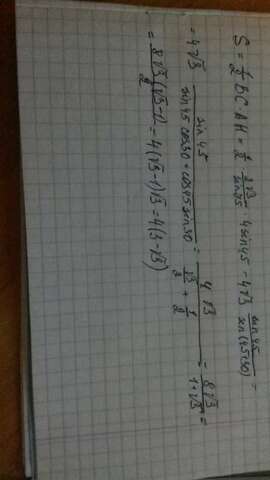 S = 1/2 BC · AH = 1/2 · 2√3/sin75 · 4 sin45 - 4√3 sin45/sin(45+30) =
= 4√3 sin45/(sin45 cos30 + cos45 sin30) = 4√3/(√3/2 + 1/2) = 8√3/(1+√3) =
= 8√3(√3-1)/2 = 4(√3-1)√3 = 4(3-√3)